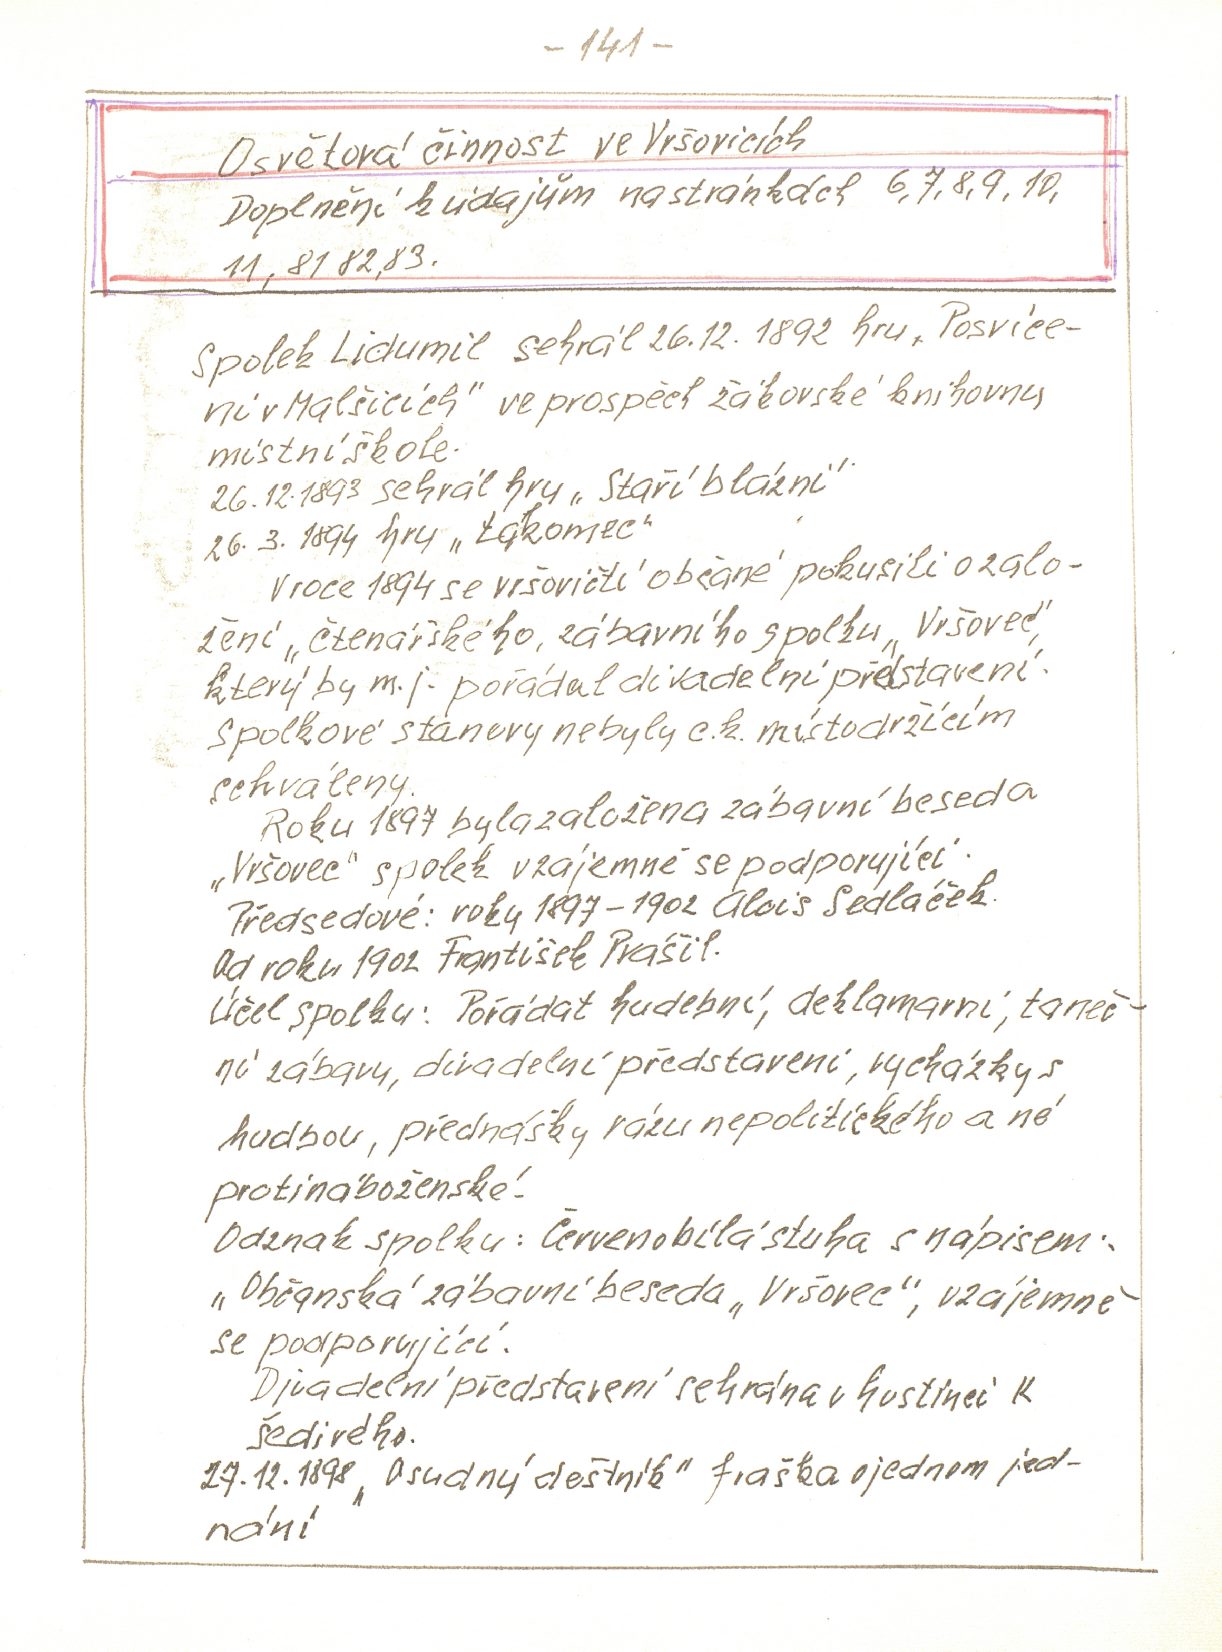 - 141 -
Osvětová činnost ve Vršovicích
Doplnění k údajům na stránkách 6,7,8,9,10,
11, 81 82,83.
Spolek Lidumil sehrál 26.12. 1892 hru „Posvíce-
ní v Malšicích" ve prospěch žákovské knihovny
místní škole.
26.12.1893 sehrál hru „Staří blázni"
26. 3. 1894 hru „Lakomec"
V roce 1894 se vršovičtí občané pokusili o zalo-
žení „čtenářského, zábavního spolku „Vršovec",
který by m.j. pořádal divadelní představení.
Spolkové stanovy nebyly c.k. místodržícím
schváleny.
Roku 1897 byla založena zábavní beseda
„Vršovec" spolek vzájemně se podporující.
Předsedové: roky 1897-1902 Alois Sedláček.
Od roku 1902 František Prášil.
Účel spolku: Pořádat hudební, deklamarní, taneč-
ní zábavy, divadelní představení, vycházky s
hudbou, přednášky rázu nepolitického a né
protináboženské.
Odznak spolku: Červenobílá stuha s nápisem:
„Občanská zábavní beseda „Vršovec", vzájemně
se podporující.
Divadelní představení sehrána v hostinci K
Šedivého.
27.12.1898 „Osudný deštník" fraška o jednom jed-
nání